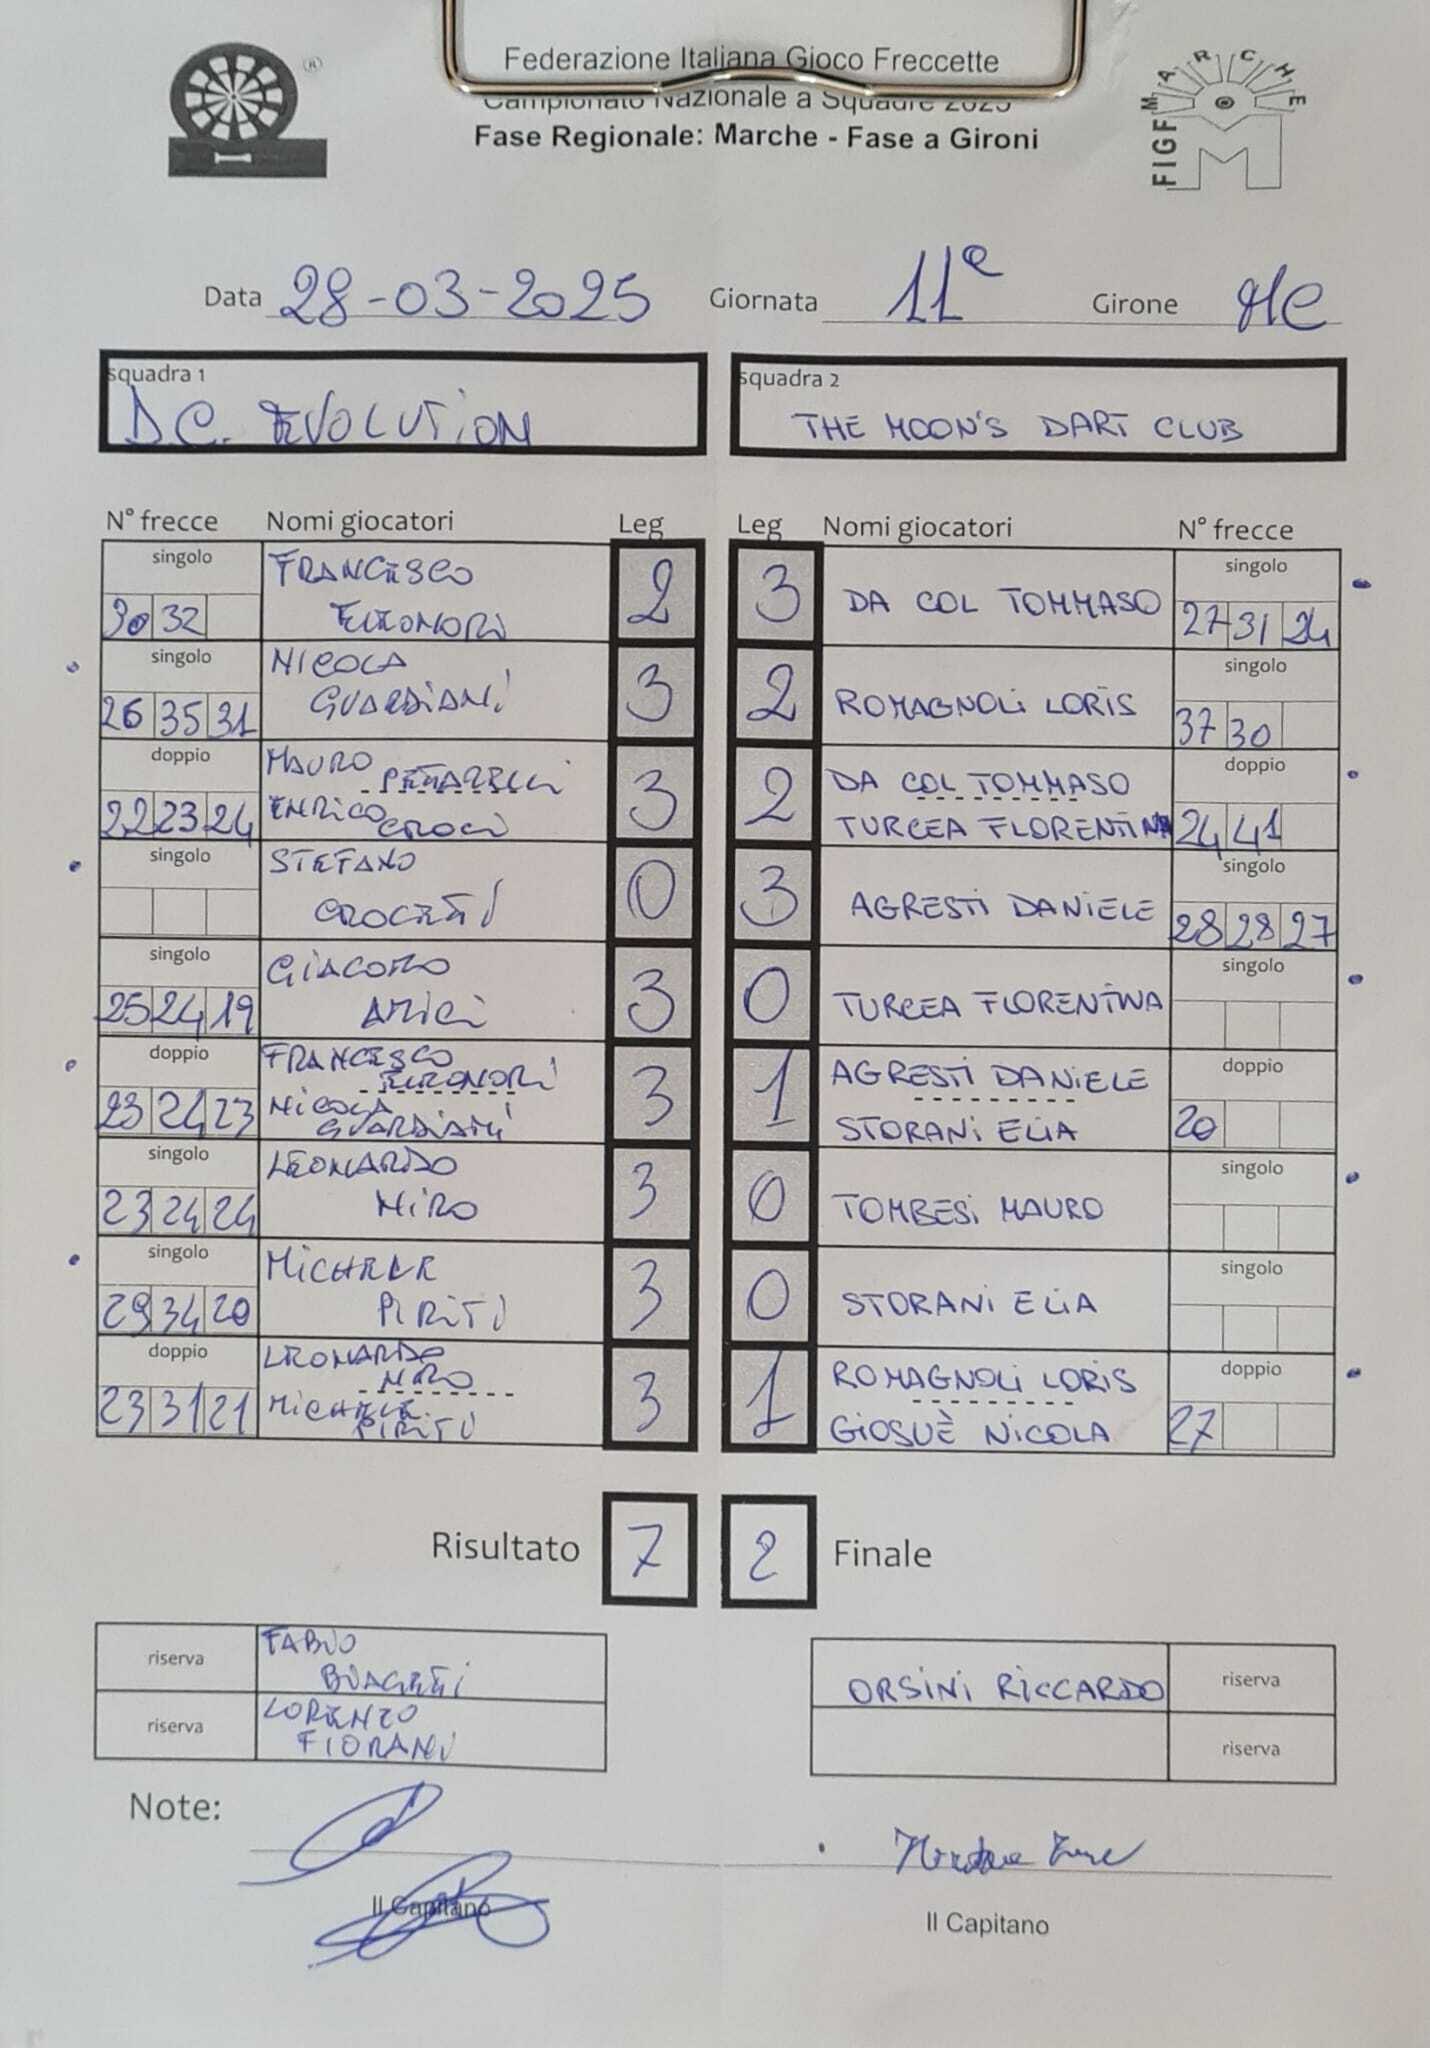 Federazione Italiana Gioco Freccette
Campionato Nazionale a Squadre 2025
Fase Regionale: Marche - Fase a Gironi
®
MARCHE
FIGF
M
Data 28-03-2025 Giornata 11ª Girone
squadra 1
D.C. EVOLUTION
squadra 2
THE MOON'S DART CLUB
N° frecce Nomi giocatori Leg Leg Nomi giocatori N° frecce
singolo FRANCESCO singolo
30 32 2 3 DA COL TOMMASO 27 31 24
singolo NICOLA singolo
26 35 31 GUARDIANI 3 2 ROMAGNOLI LORIS 37 30
doppio MAURO DA COL TOMMASO doppio
22 23 24 ENRICO CROCI 3 2 TURCEA FLORENTINA 24 41
singolo STEFANO singolo
CROCETTI 0 3 AGRESTI DANIELE 28 28 27
singolo GIACOMO singolo
25 24 19 AMICI 3 0 TURCEA FLORENTINA
doppio FRANCESCO AGRESTI DANIELE doppio
23 24 23 NICOLA GUARDIANI 3 1 STORANI ELIA 20
singolo LEONARDO singolo
23 24 24 NIRO 3 0 TOMBESI MAURO
singolo MICHELE singolo
29 34 20 PIRITU 3 0 STORANI ELIA
doppio LEONARDO NIRO ROMAGNOLI LORIS doppio
23 31 21 MICHELE PIRITU 3 1 GIOSUÈ NICOLA 27
Risultato 7 2 Finale
riserva FABIO
BIAGETTI
riserva LORENZO
FIORANI
ORSINI RICCARDO riserva
riserva
Note:
Il Capitano
Il Capitano